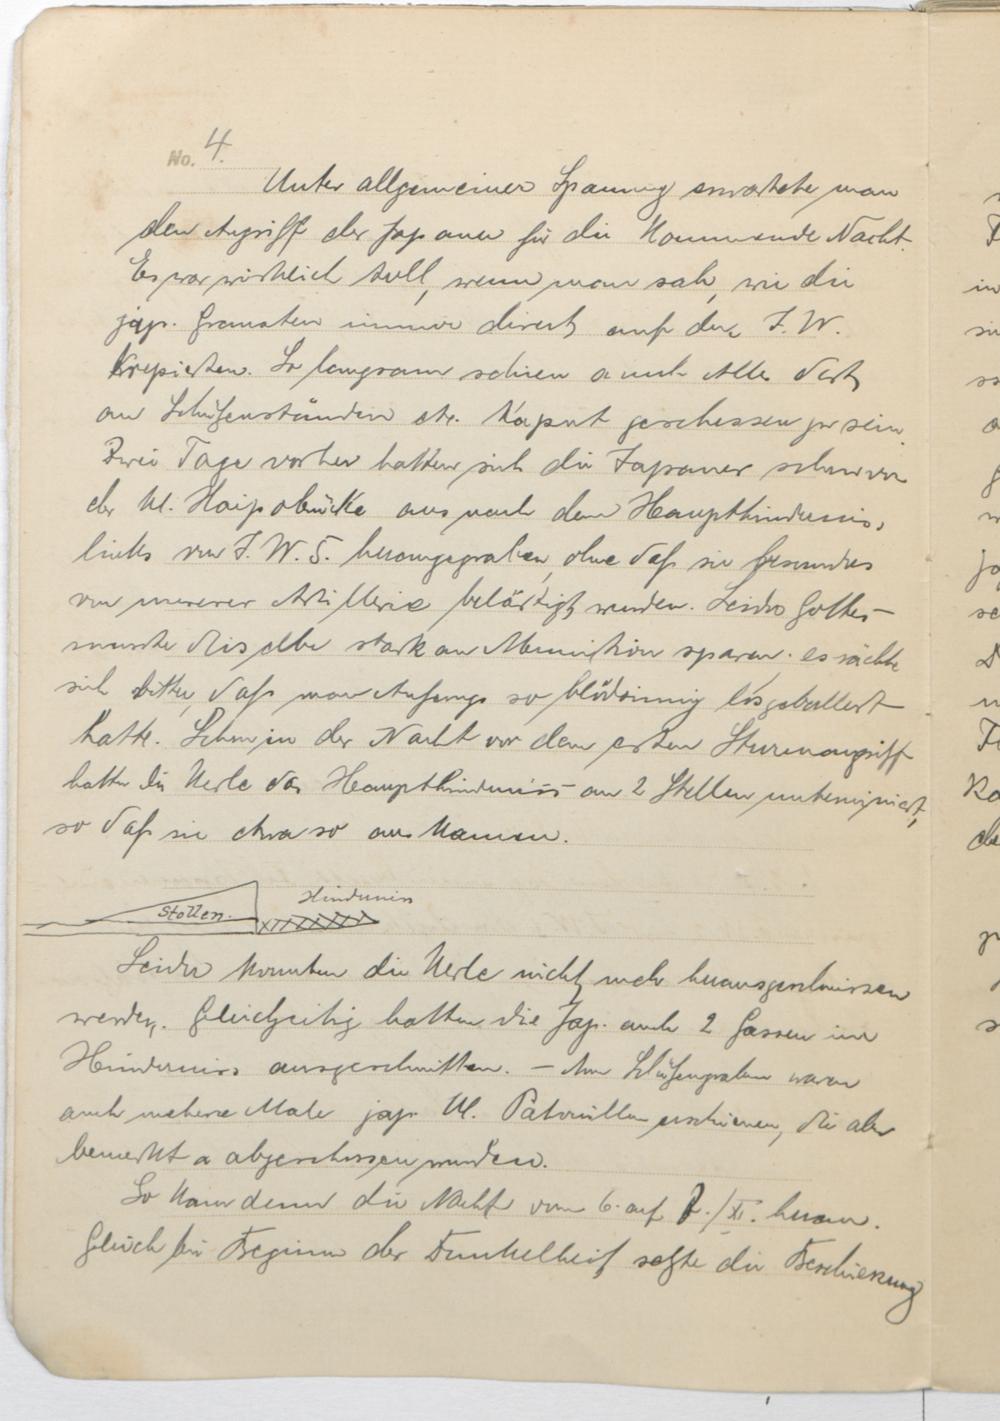 No. 4.
Unter allgemeiner Spannung erwartete man
den Angriff der Japaner für die kommende Nacht.
Es war wirklich toll, wenn man sah, wie die
jap. Granaten immer direct auf den I. W.
krepierten. So langsam schien auch Alles dort
an Schützenständen etc. kaput geschossen zu sein.
Zwei Tage vorher hatten sich die Japaner schon von
der kl. Haipobrücke aus nach dem Haupthinderniss,
links von I. W. 5. herangegraben, ohne daß sie besonders
von unserer Artillerie belästigt wurden. Leider Gottes
musste dieselbe stark an Munition sparen. es rächte
sich bitter, daß man Anfangs so blödsinnig losgeballert
hatte. Schon in der Nacht vor dem ersten Sturmangriff
hatten die Kerle das Haupthinderniss an 2 Stellen unterminiert,
so daß sie etwa so aus kamen.
Stollen. Hinderniss
Leider konnten die Kerle nicht mehr herausgeschmissen
werden. Gleichzeitig hatten die Jap. auch 2 Gassen im
Hinderniss ausgeschnitten. – Am Schützengraben waren
auch mehrere Male jap. kl. Patrouillen erschienen, die aber
bemerkt u abgeschossen wurden.
So kam denn die Nacht vom 6. auf 7./XI. heran.
Gleich bei Beginn der Dunkelheit setzte die Beschiessung